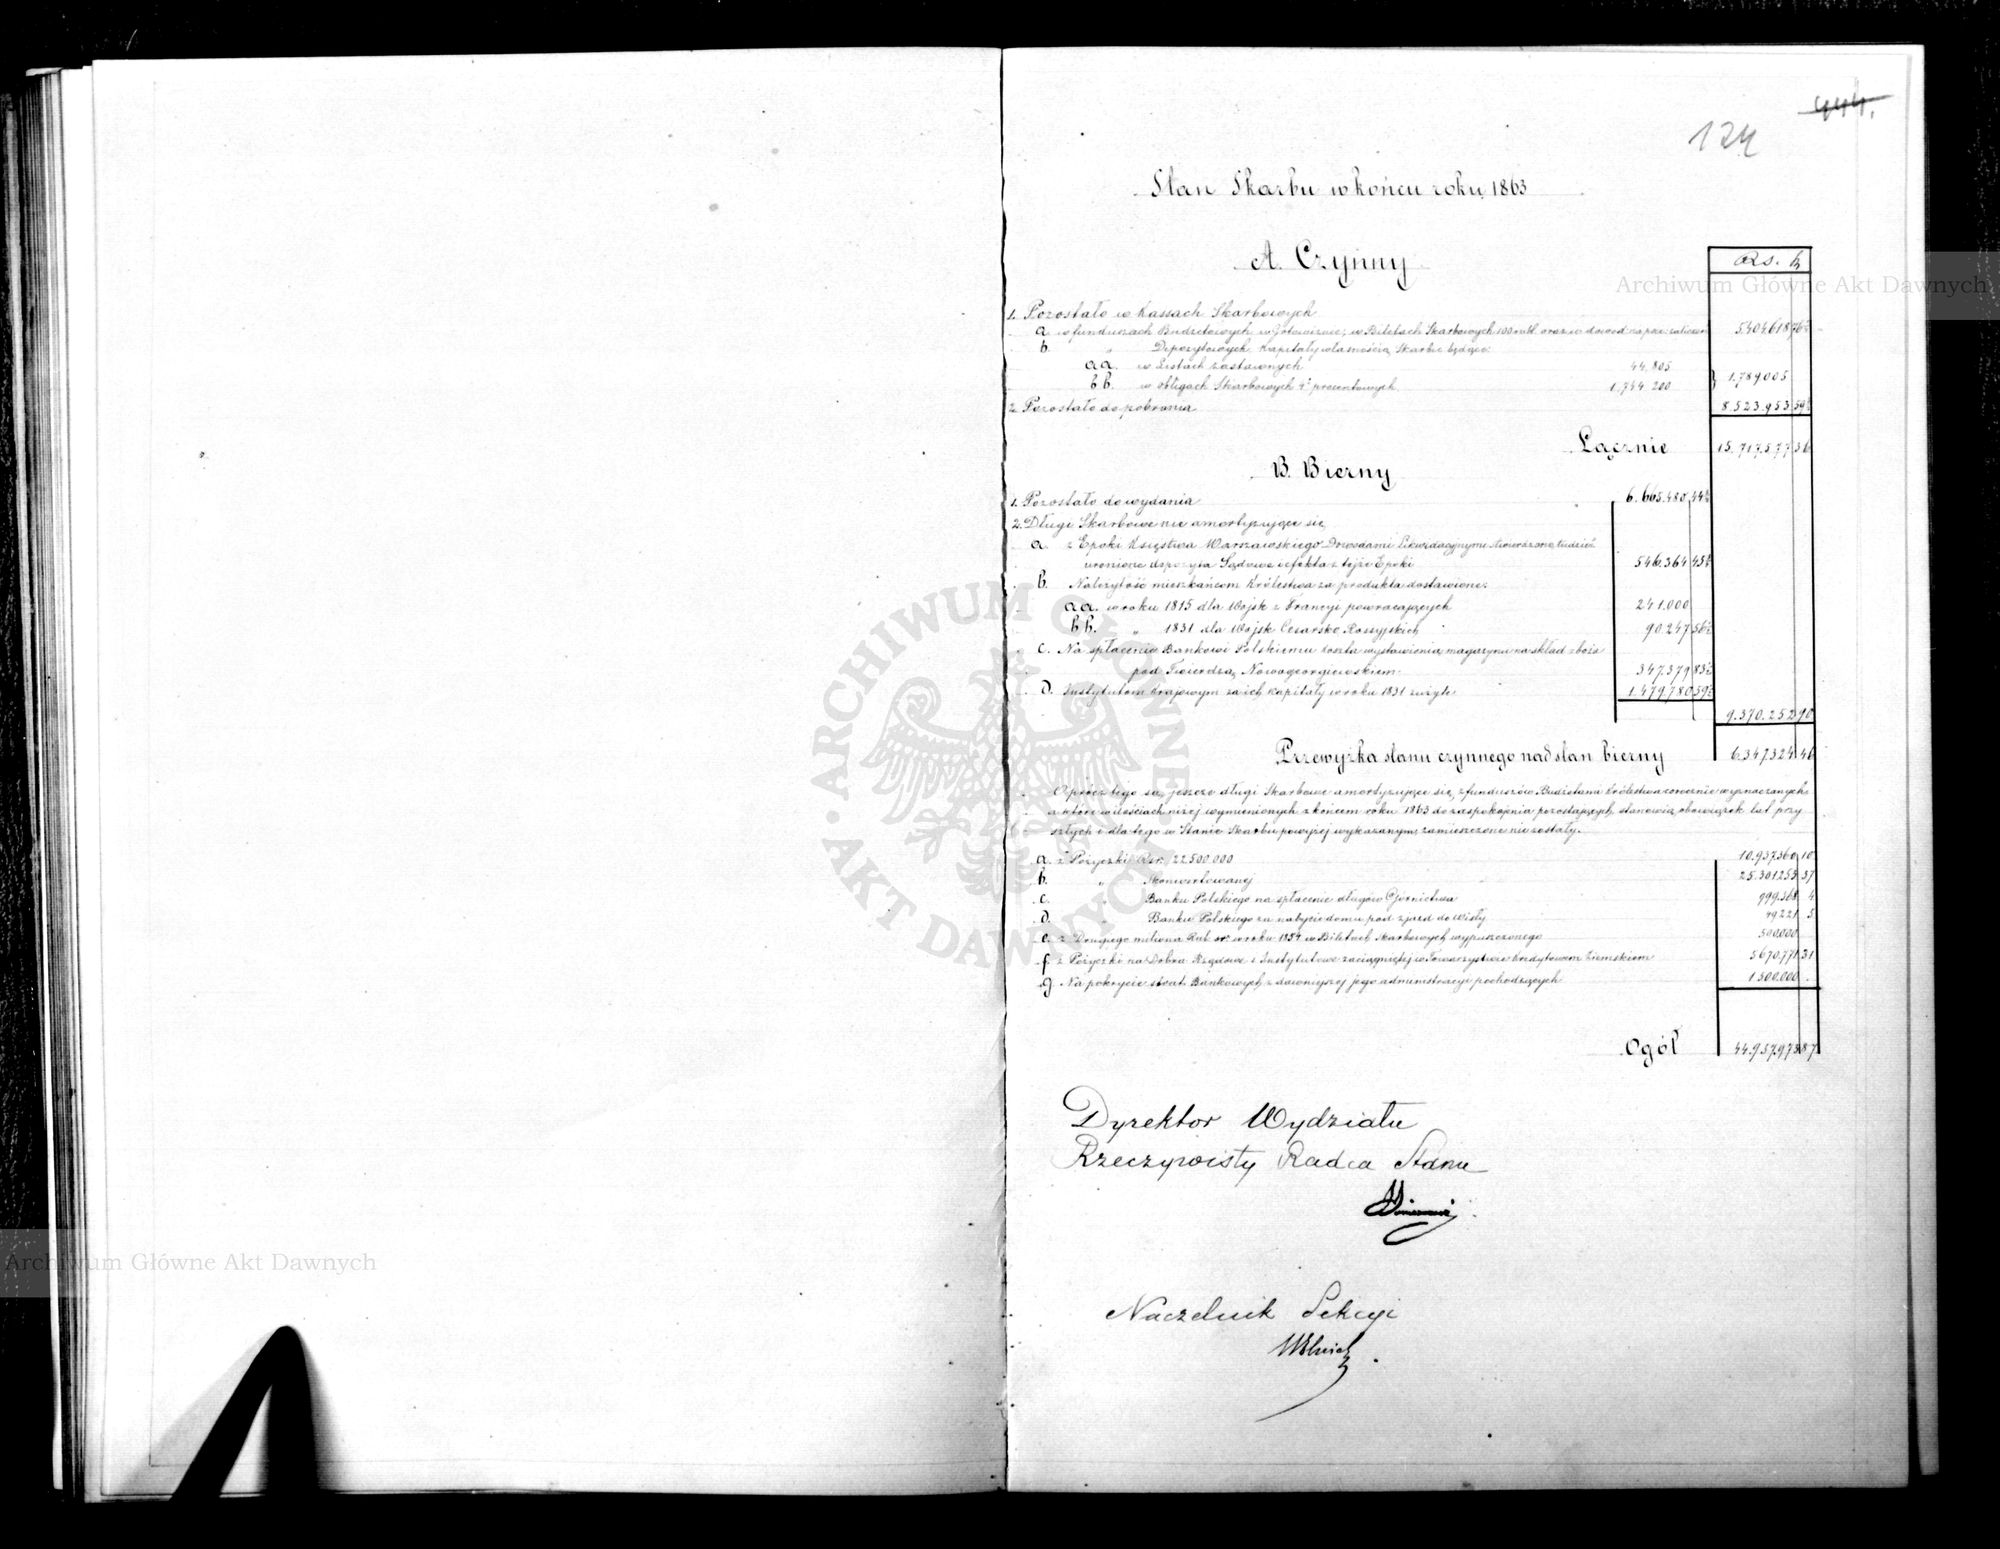 444.
124
Stan Skarbu w końcu roku 1863
A. Czynny
Rs. k.
1. Pozostało w Kassach Skarbowych
a. w funduszach Budżetowych w gotowiznie, w Biletach Skarbowych 100 rubl. oraz w dowod. na prze. zaliczen. 5.404.618 76½
b. „ Depozytowych kapitały własnością Skarbu będące:
aa. w Listach zastawnych 44.805
bb. w obligach Skarbowych 4. procentowych 1.744.200 } 1.789.005
2. Pozostało do pobrania 8.523.953 59½
Łącznie 15.717.577 36
B. Bierny
1. Pozostało do wydania 6.665.480 44½
2. Długi Skarbowe nie amortyzujące się
a. z Epoki Księstwa Warszawskiego Dowodami Likwidacyjnymi stwierdzone, tudzież
wronione depozyta Sądowe i efekta z tejże Epoki 546.364 45½
b. Należytość mieszkańcom Królestwa za produkta dostawione:
aa. w roku 1815 dla Wojsk z Francyi powracających 241.000
bb. „ 1831 dla Wojsk Cesarsko Rossyjskich 90.247 56½
c. Na spłacenie Bankowi Polskiemu koszta wystawienia magazynu na skład zboża
pod Twierdzą Nowogeorgiewskiem 347.379 83½
d. Instytutom krajowym za ich kapitały w roku 1831 zużyte 1.479.780 59½
9.370.252 90
Przewyżka stanu czynnego nad stan bierny 6.347.324 46
Oprócz tego są jeszcze długi Skarbowe amortyzujące się, z funduszów Budżetami Królestwa corocznie wyznaczanych,
a które w ilościach niżej wymienionych z końcem roku 1863 do zaspokojenia pozostających, stanowią obowiązek lat przy
szłych i dla tego w Stanie Skarbu powyżej wykazanym, zamieszczone nie zostały.
a. z Pożyczki Rsr. 22.500.000 10.937.360 10
b. „ Skonwertowanej 25.301.253 37
c. „ Banku Polskiego na spłacenie długów Górnictwa 999.368 4
d. „ Banku Polskiego za nabycie domu pod zjazd do Wisły 49.221 5
e. z Drugiego miliona Rub. sr. w roku 1854 w Biletach Skarbowych wypuszczonego 500.000
f. z Pożyczki na Dobra Rządowe i Instytutowe zaciągniętej w Towarzystwie Kredytowem Ziemskiem 5.670.771 31
g. Na pokrycie strat Bankowych z dawniejszej jego administracyi pochodzących 1.500.000
Ogół 44.957.973 87
Dyrektor Wydziału
Rzeczywisty Radca Stanu
Naczelnik Sekcyi
Archiwum Główne Akt Dawnych
Archiwum Główne Akt Dawnych
ARCHIWUM GŁÓWNE • AKT DAWNYCH •